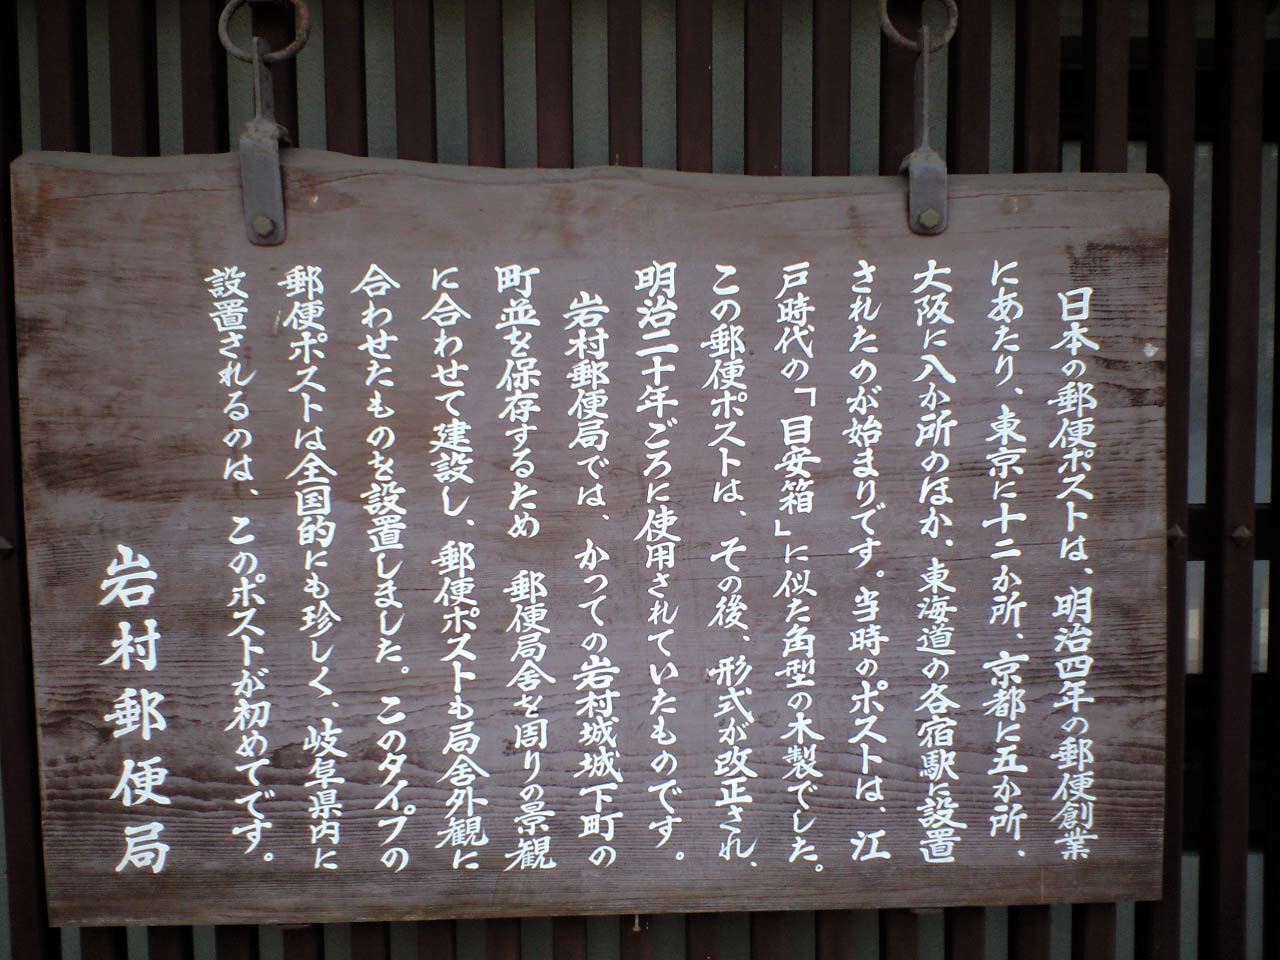 日本の郵便ポストは、明治四年の郵便創業
にあたり、東京に十二か所、京都に五か所、
大阪に八か所のほか、東海道の各宿駅に設置
されたのが始まりです。当時のポストは、江
戸時代の「目安箱」に似た角型の木製でした。
この郵便ポストは、その後、形式が改正され、
明治二十年ごろに使用されていたものです。
岩村郵便局では、かつての岩村城城下町の
町並を保存するため　郵便局舎を周りの景観
に合わせて建設し、郵便ポストも局舎外観に
合わせたものを設置しました。このタイプの
郵便ポストは全国的にも珍しく、岐阜県内に
設置されるのは、このポストが初めてです。
岩村郵便局